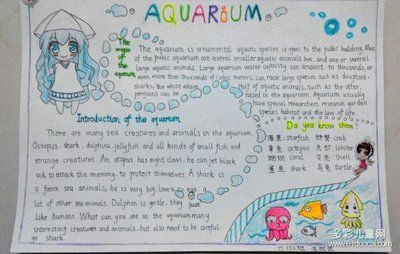 AQUARIUM
The origin of the aquarium
The aquarium is ornamental aquatic species is open to the public building. Most
of the public aquarium are several smaller aquatic animals box, and one or several
large aquatic animals. Large aquarium water capacity can amount to thousands, or
even more than thousands of cubic meters, can raise large species, such as dauphins,
sharks, the white whale, Half of aquatic animals, such as the otter,
penguins can be raised in the aquarium. Aquarium usually
have special researchers, research garden
species habitat and the law of life.
Introduction of the aquarium
There are many sea creatures and animals in the aquarium.
Octopus, shark, dolphins, jellyfish and all kinds of small fish and
strange creatures. An otopus has eight claws, he can jet black
ink to attack the memmy, to protect themselves. A shark is
a fierce sea animals, he is very big, love to eat a
lot of other sea animals. Dolphin is gentle, they just
like humans. What can you see in the aquarium many
interesting creatures and animals, but also need to be careful
yo shark.
Do you know them?
海星: starfish 螃蟹 crab
章鱼 octopus 龙虾 lobster
珊瑚 coral 贝壳 shell
鲨鱼 shark 乌龟 turtle
多彩儿童网